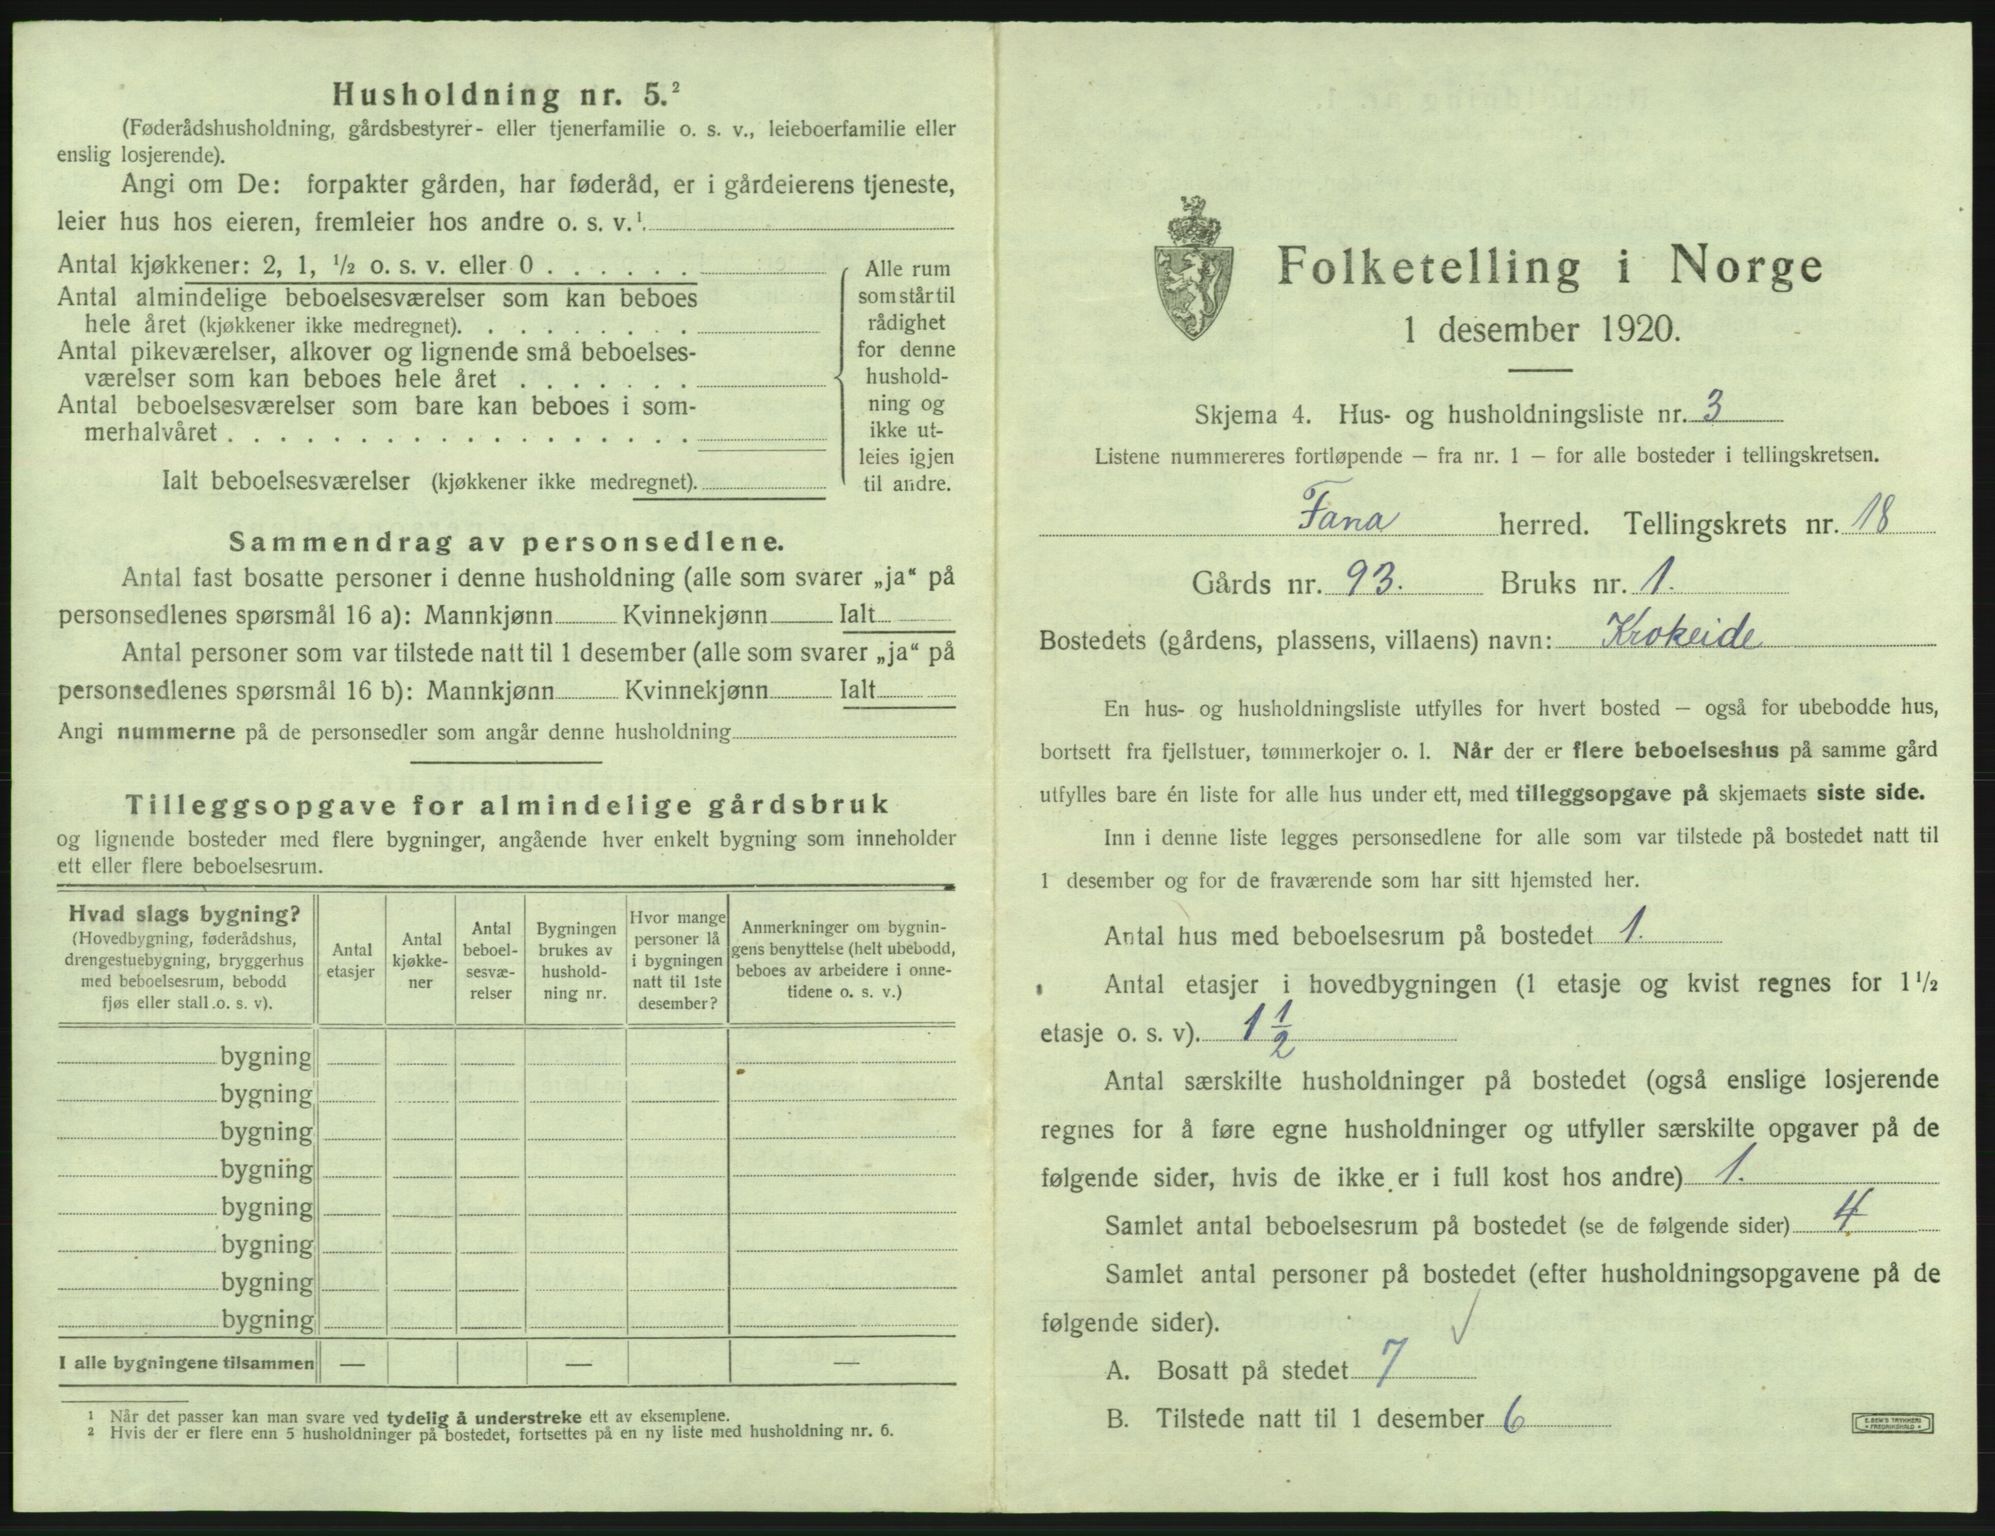 Husholdning nr. 5.²
(Føderådshusholdning, gårdsbestyrer- eller tjenerfamilie o. s. v., leieboerfamilie eller
enslig losjerende).
Angi om De: forpakter gården, har føderåd, er i gårdeierens tjeneste,
leier hus hos eieren, fremleier hos andre o. s. v.¹.
Antal kjøkkener: 2, 1, ¹/₂ o. s. v. eller 0 . . . . . .
Antal almindelige beboelsesværelser som kan beboes
hele året (kjøkkener ikke medregnet). . . . . . . . .
Antal pikeværelser, alkover og lignende små beboelses-
værelser som kan beboes hele året . . . . . . .
Antal beboelsesværelser som bare kan beboes i som-
merhalvåret . . . . . . . . . . . . . . . . . .
Ialt beboelsesværelser (kjøkkener ikke medregnet).
Alle rum
som står til
rådighet
for denne
hushold-
ning og
ikke ut-
leies igjen
til andre.
Sammendrag av personsedlene.
Antal fast bosatte personer i denne husholdning (alle som svarer „ja“ på
personsedlenes spørsmål 16 a): Mannkjønn Kvinnekjønn Ialt
Antal personer som var tilstede natt til 1 desember (alle som svarer „ja“ på
personsedlenes spørsmål 16 b): Mannkjønn Kvinnekjønn Ialt
Angi nummerne på de personsedler som angår denne husholdning
Tilleggsopgave for almindelige gårdsbruk
og lignende bosteder med flere bygninger, angående hver enkelt bygning som inneholder
ett eller flere beboelsesrum.
Hvad slags bygning?
(Hovedbygning, føderådshus,
drengestuebygning, bryggerhus
med beboelsesrum, bebodd
fjøs eller stall .o. s. v).
Antal
etasjer
Antal
kjøkke-
ner
Antal
beboel-
sesvæ-
relser
Bygningen
brukes av
hushold-
ning nr.
Hvor mange
personer lå
i bygningen
natt til 1ste
desember?
Anmerkninger om bygnin-
gens benyttelse (helt ubebodd,
beboes av arbeidere i onne-
tidene o. s. v.)
bygning
bygning
bygning
bygning
bygning
bygning
bygning
bygning
I alle bygningene tilsammen — — —
¹ Når det passer kan man svare ved tydelig å understreke ett av eksemplene.
² Hvis der er flere enn 5 husholdninger på bostedet, fortsettes på en ny liste med husholdning nr. 6.
Folketelling i Norge
1 desember 1920.
Skjema 4. Hus- og husholdningsliste nr. 3
Listene nummereres fortløpende — fra nr. 1 — for alle bosteder i tellingskretsen.
Fana herred. Tellingskrets nr. 18
Gårds nr. 93. Bruks nr. 1.
Bostedets (gårdens, plassens, villaens) navn: Krokeide
En hus- og husholdningsliste utfylles for hvert bosted — også for ubebodde hus,
bortsett fra fjellstuer, tømmerkojer o. l. Når der er flere beboelseshus på samme gård
utfylles bare én liste for alle hus under ett, med tilleggsopgave på skjemaets siste side.
Inn i denne liste legges personsedlene for alle som var tilstede på bostedet natt til
1 desember og for de fraværende som har sitt hjemsted her.
Antal hus med beboelsesrum på bostedet 1.
Antal etasjer i hovedbygningen (1 etasje og kvist regnes for 1 ¹/₂
etasje o. s. v). 1 ½
Antal særskilte husholdninger på bostedet (også enslige losjerende
regnes for å føre egne husholdninger og utfyller særskilte opgaver på de
følgende sider, hvis de ikke er i full kost hos andre) 1.
Samlet antal beboelsesrum på bostedet (se de følgende sider) 4
Samlet antal personer på bostedet (efter husholdningsopgavene på de
følgende sider).
A. Bosatt på stedet 7
B. Tilstede natt til 1 desember 6
E. SEM'S TRYKKERI
FREDRIKSHALD